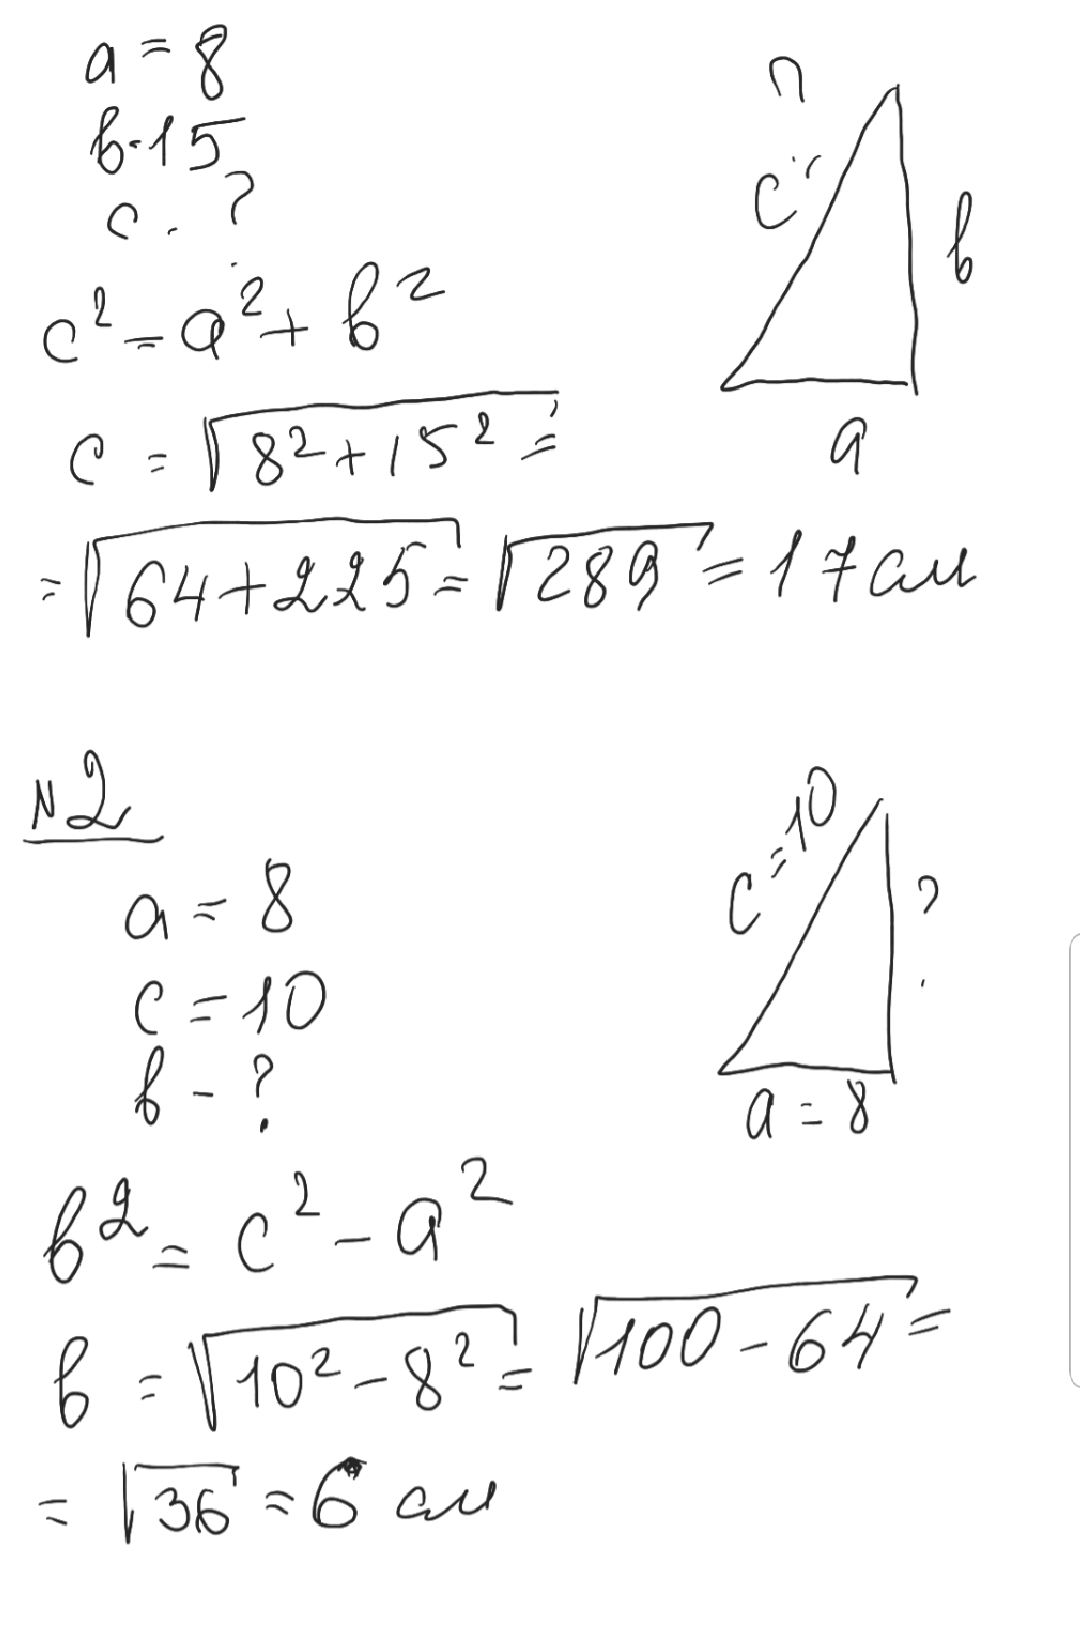 a = 8
в = 15
c - ?
c² = a² + в²
c = √8² + 15² =
= √64 + 225 = √289 = 17 см
?
c
в
a
№2
a = 8
c = 10
в - ?
c = 10
?
a = 8
в² = c² - a²
в = √10² - 8² = √100 - 64 =
= √36 = 6 см